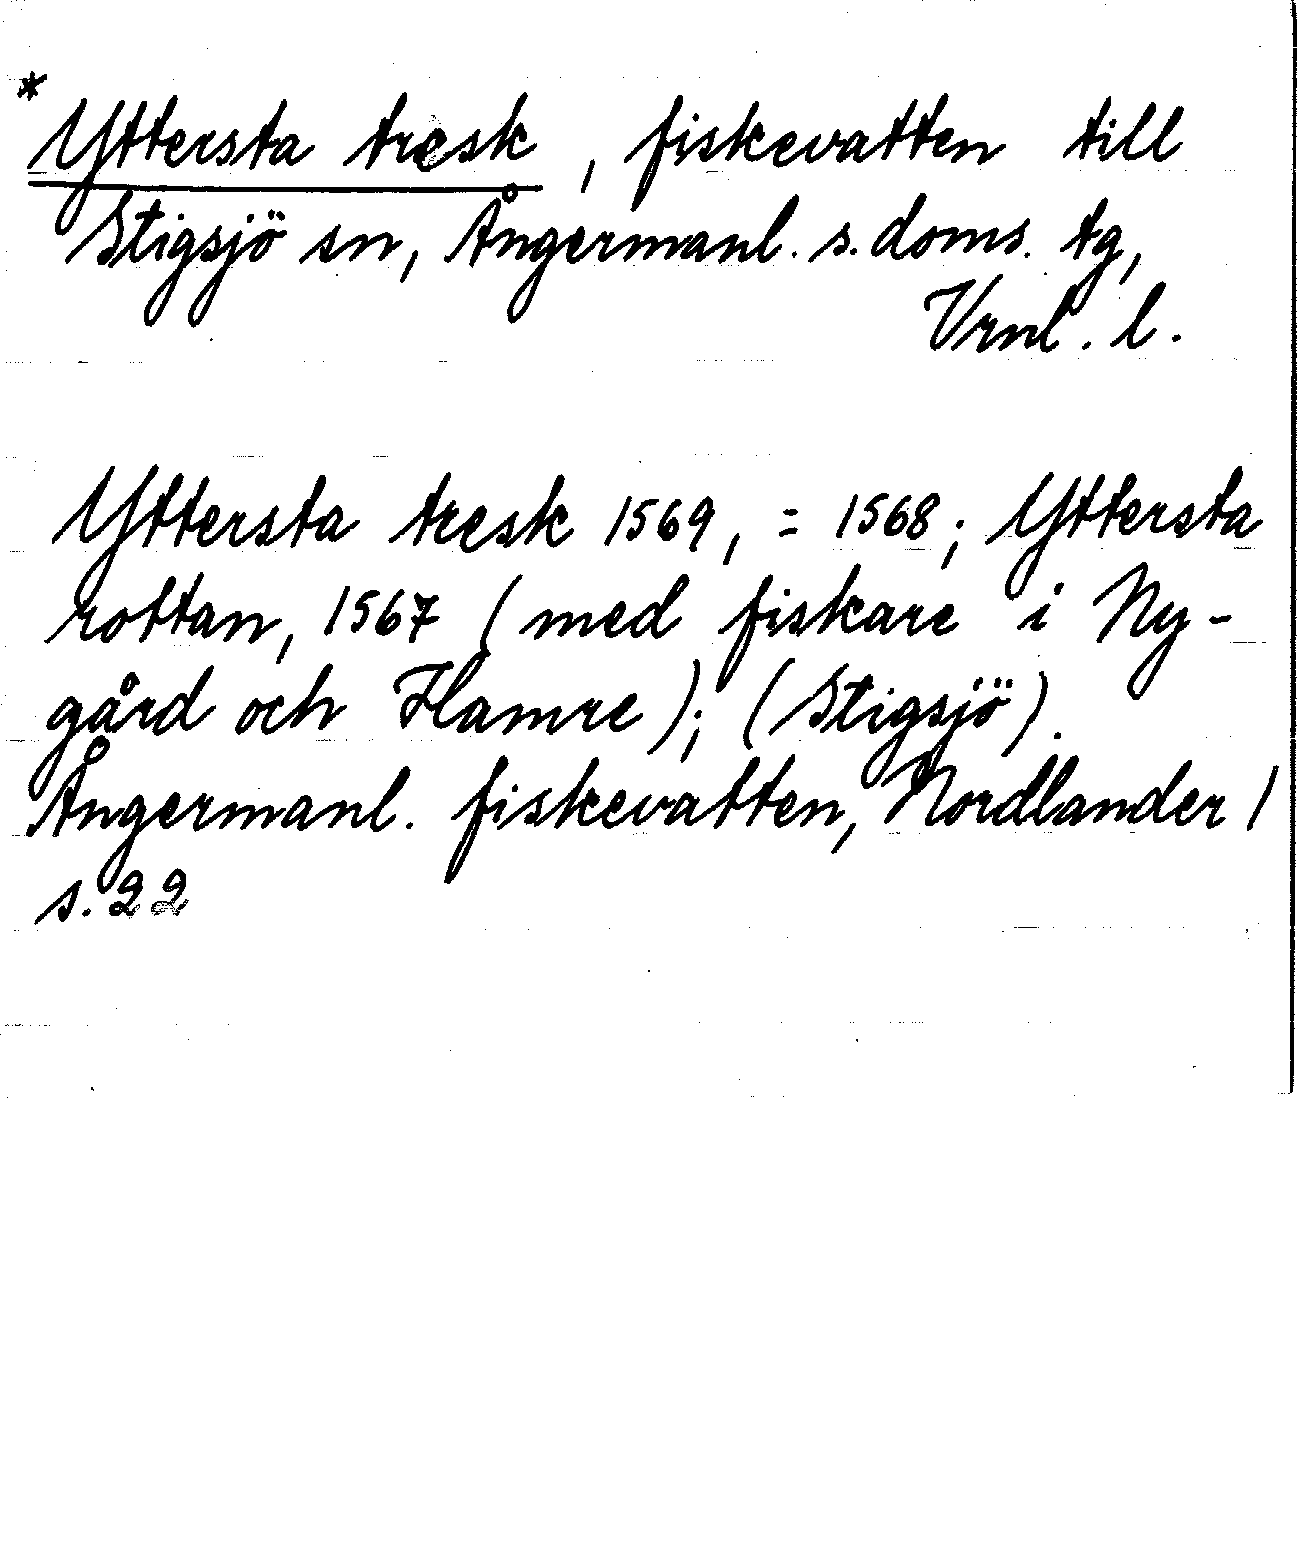 * Yttersta tresk, fiskevatten till
Stigsjö sn, Ångermanl. s. doms. tg,
Vrnl. l.
Yttersta tresk 1569, = 1568; Yttersta
rottan, 1567 (med fiskare i Ny-
gård och Hamre); (Stigsjö).
Ångermanl. fiskevatten, Nordlander 1
s. 22